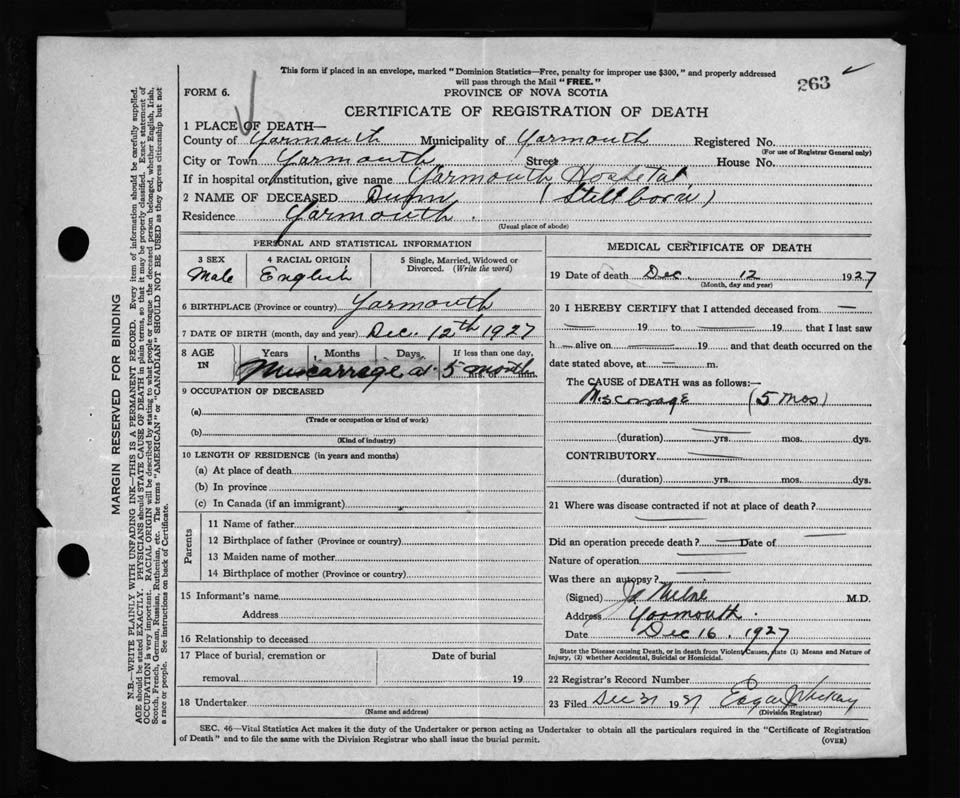 This form if placed in an envelope, marked "Dominion Statistics—Free, penalty for improper use $300," and properly addressed
will pass through the Mail "FREE."
263
FORM 6.
PROVINCE OF NOVA SCOTIA
CERTIFICATE OF REGISTRATION OF DEATH
1 PLACE OF DEATH—
County of Yarmouth Municipality of Yarmouth Registered No.
(For use of Registrar General only)
City or Town Yarmouth Street House No.
If in hospital or institution, give name Yarmouth Hospital
2 NAME OF DECEASED Dunn (Stillborn)
Residence Yarmouth.
(Usual place of abode)
PERSONAL AND STATISTICAL INFORMATION
3 SEX 4 RACIAL ORIGIN 5 Single, Married, Widowed or
Divorced. (Write the word)
Male English
6 BIRTHPLACE (Province or country) Yarmouth
7 DATE OF BIRTH (month, day and year) Dec. 12th 1927
8 AGE IN Years Months Days If less than one day,
hrs. or min.
Miscarrage at 5 month
9 OCCUPATION OF DECEASED
(a)
(Trade or occupation or kind of work)
(b)
(Kind of industry)
10 LENGTH OF RESIDENCE (in years and months)
(a) At place of death
(b) In province
(c) In Canada (if an immigrant)
Parents
11 Name of father
12 Birthplace of father (Province or country)
13 Maiden name of mother
14 Birthplace of mother (Province or country)
15 Informant's name
Address
16 Relationship to deceased
17 Place of burial, cremation or Date of burial
removal 19
18 Undertaker
(Name and address)
MEDICAL CERTIFICATE OF DEATH
19 Date of death Dec. 12 1927
(Month, day and year)
20 I HEREBY CERTIFY that I attended deceased from
19 to 19 that I last saw
h alive on 19 and that death occurred on the
date stated above, at m.
The CAUSE of DEATH was as follows:—
Miscarrage (5 mos)
(duration) yrs. mos. dys.
CONTRIBUTORY
(duration) yrs. mos. dys.
21 Where was disease contracted if not at place of death?
Did an operation precede death? Date of
Nature of operation
Was there an autopsy?
(Signed) Milne M.D.
Address Yarmouth.
Date Dec 16, 1927
State the Disease causing Death, or in death from Violent Causes, state (1) Means and Nature of
Injury, (2) whether Accidental, Suicidal or Homicidal.
22 Registrar's Record Number
23 Filed Dec 31 1927 Edgar
(Division Registrar)
SEC. 46—Vital Statistics Act makes it the duty of the Undertaker or person acting as Undertaker to obtain all the particulars required in the "Certificate of Registration
of Death" and to file the same with the Division Registrar who shall issue the burial permit.
(OVER)
MARGIN RESERVED FOR BINDING
N.B.—WRITE PLAINLY WITH UNFADING INK—THIS IS A PERMANENT RECORD. Every item of information should be carefully supplied.
AGE should be stated EXACTLY. PHYSICIANS should STATE CAUSE OF DEATH in plain terms, so that it may be properly classified. Exact statement of
OCCUPATION is very important. RACIAL ORIGIN will be described by stating to what people or tongue the deceased person belonged, whether English, Irish,
Scotch, French, German, Russian, Ruthenian, etc. The terms "AMERICAN" or "CANADIAN" SHOULD NOT BE USED as they express citizenship but not
a race or people. See instructions on back of Certificate.